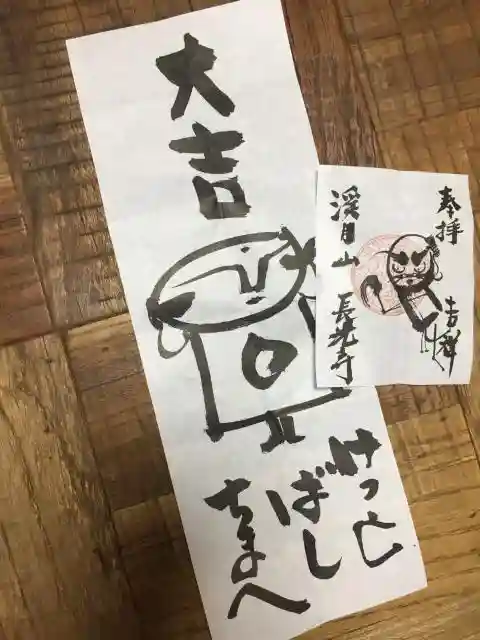 大吉
けっと
ばし
ちまへ
奉拝 吉祥
溪月山 長光寺